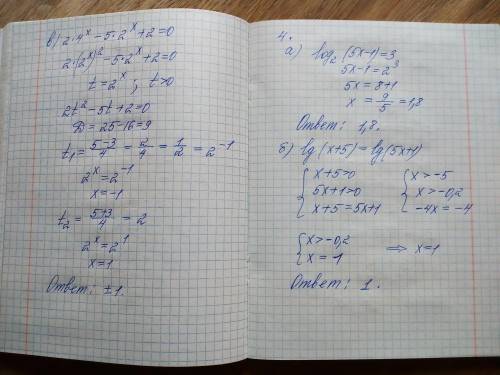 в) 2·4ˣ-5·2ˣ+2=0
2·(2ˣ)²-5·2ˣ+2=0
t=2ˣ; t>0
2t²-5t+2=0
D=25-16=9
t₁=(5-3)/4=2/4=1/2=2⁻¹
2ˣ=2⁻¹
x=-1
t₂=(5+3)/4=2
2ˣ=2¹
x=1
Ответ: ±1.
4.
а) log₂(5x-1)=3
5x-1=2³
5x=8+1
x=9/5=1,8
Ответ: 1,8.
б) lg(x+5)=lg(5x+1)
{ x+5>0 { x>-5
5x+1>0 x>-0,2
x+5=5x+1 -4x=-4
{ x>-0,2
x=1 ⇒ x=1
Ответ: 1.